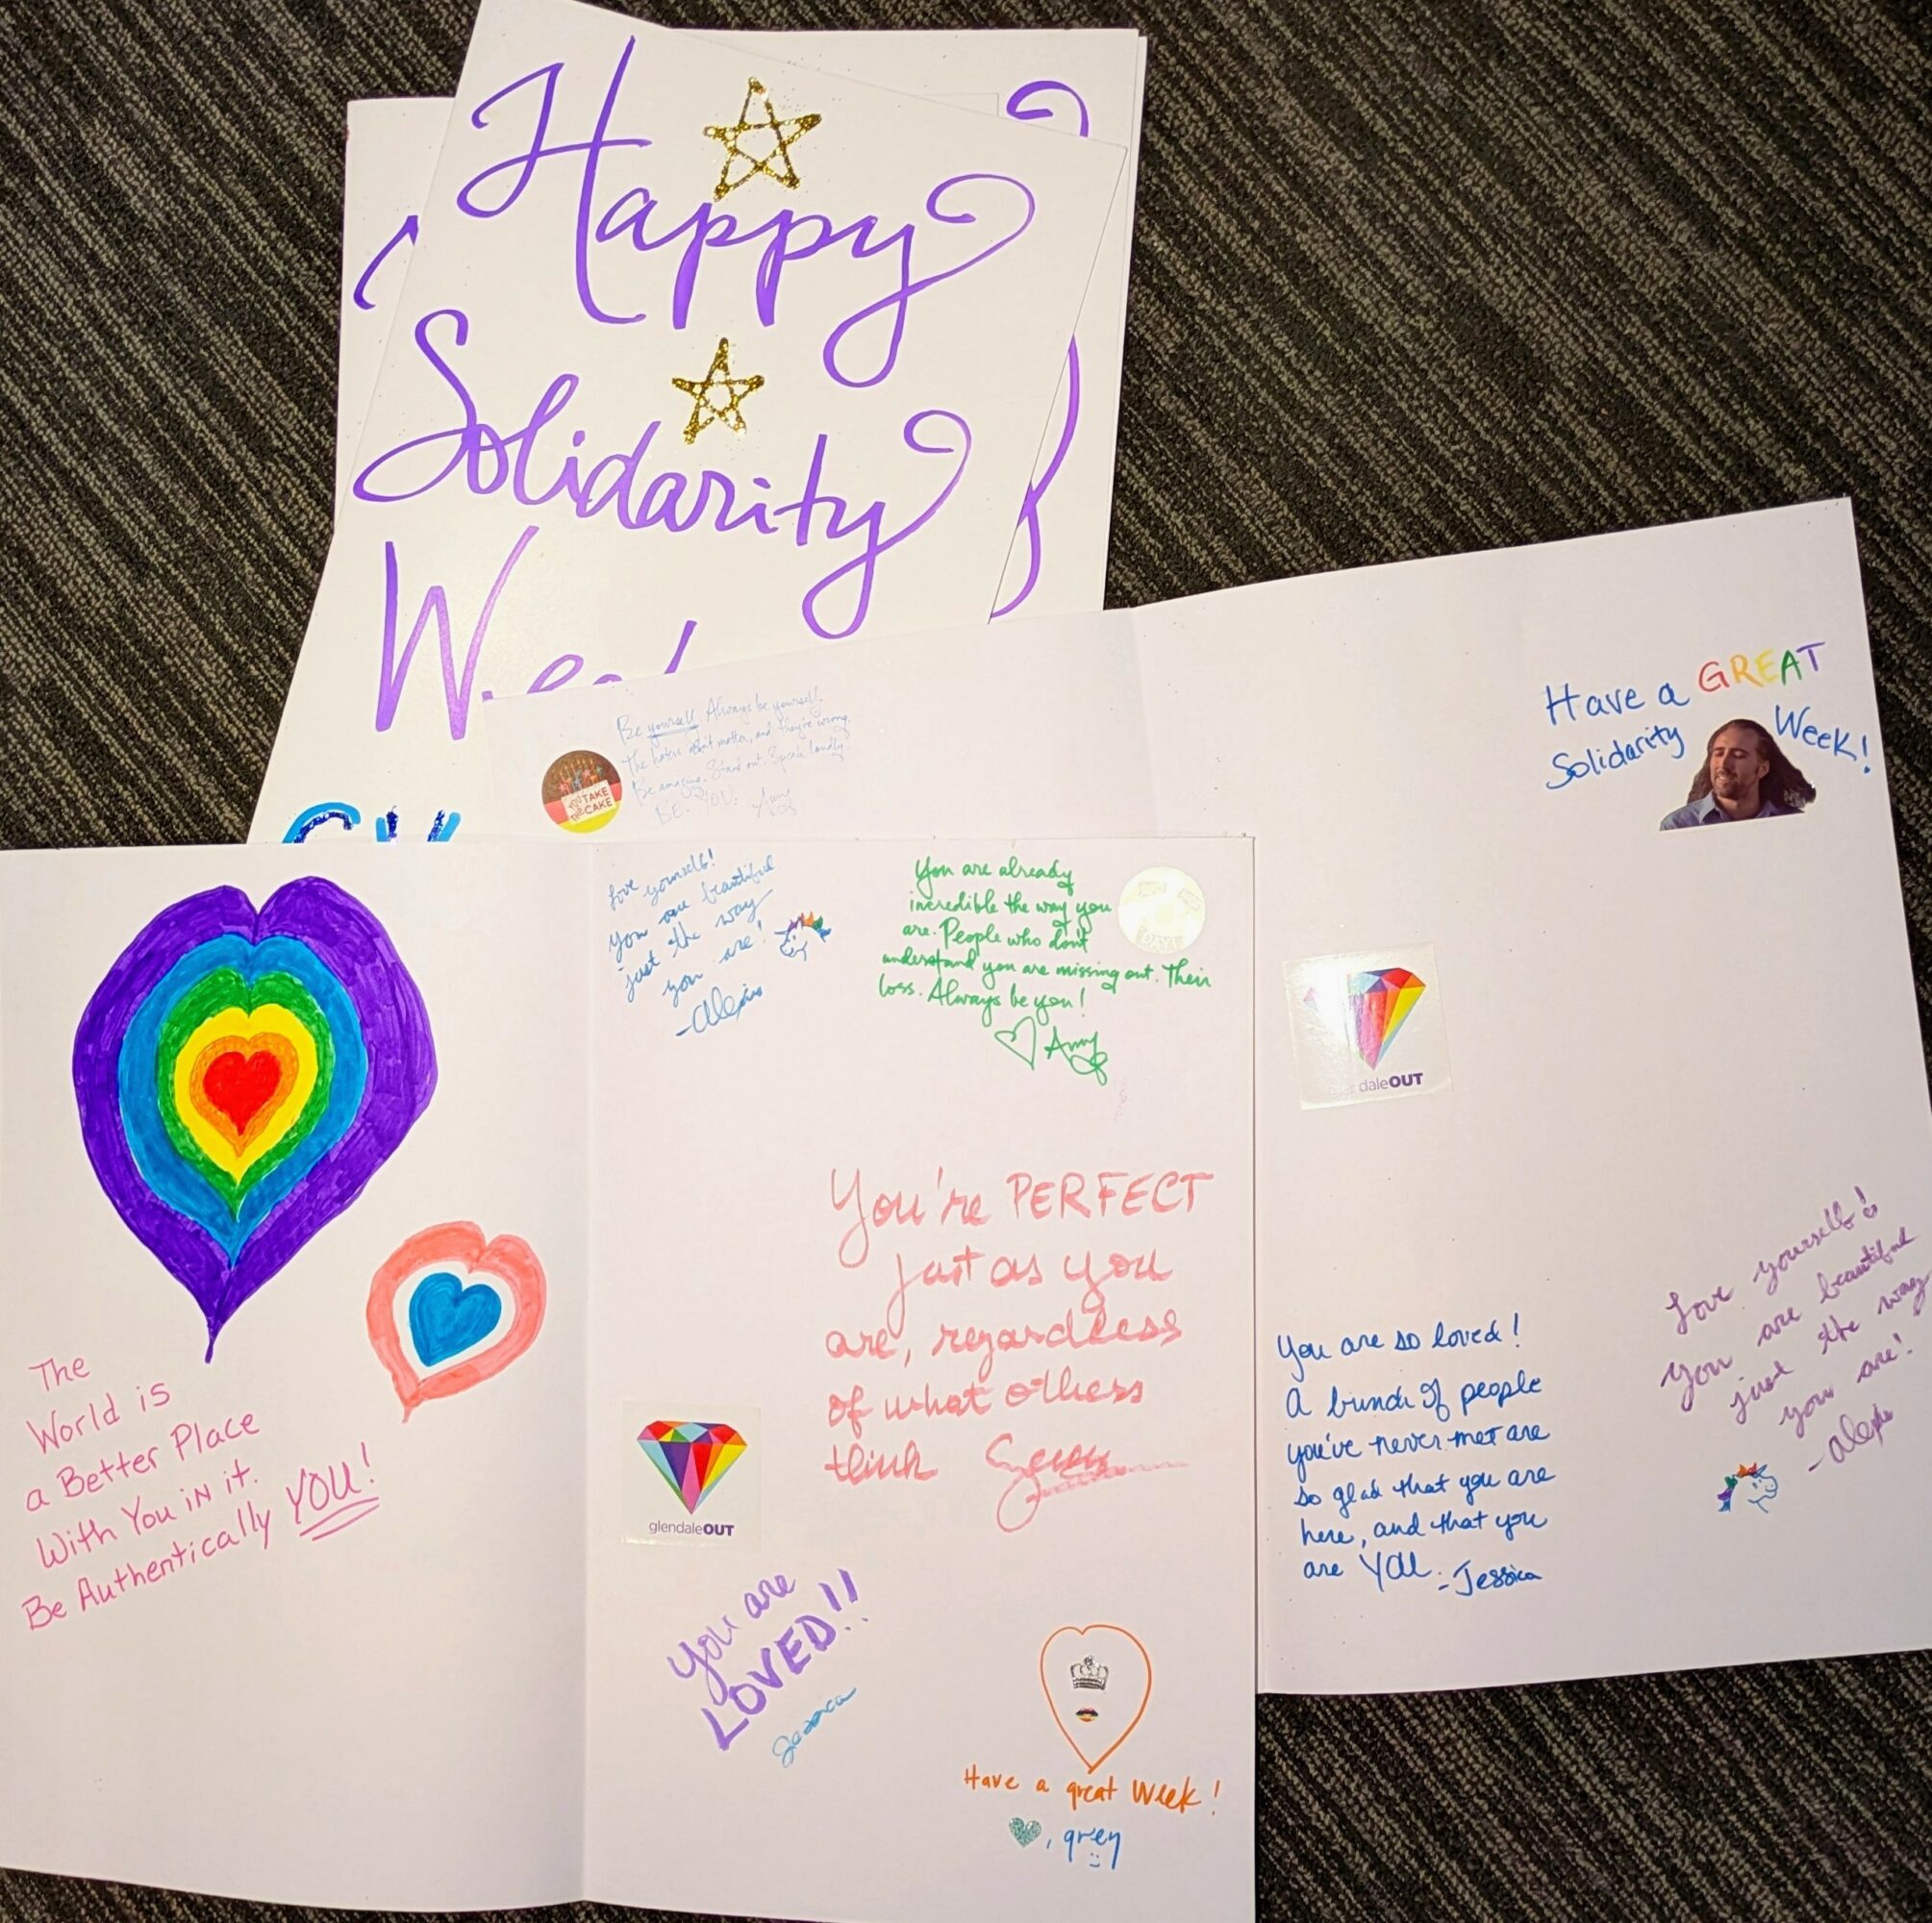 Happy
Solidarity
Week
Be yourself. Always be yourself.
The haters don't matter, and they're wrong.
Be amazing. Stand out. Speak loudly
BE. YOU. Amy
YOU TAKE
THE CAKE
Have a GREAT
Solidarity Week!
glendaleOUT
You are so loved!
A bunch of people
you've never met are
so glad that you are
here, and that you
are YOU.
-Jessica
Love yourself!
You are beautiful
just the way
you are!
-Alexis
The
World is
a Better Place
With You iN it.
Be Authentically YOU!
Love yourself!
you are beautiful
just the way
you are!
-Alexis
You are already
incredible the way you
are. People who don't
understand you are missing out. Their
loss. Always be you!
Amy
You're PERFECT
just as you
are, regardless
of what others
think
glendaleOUT
You are
LOVED!!
Jessica
Have a great Week!
, grey